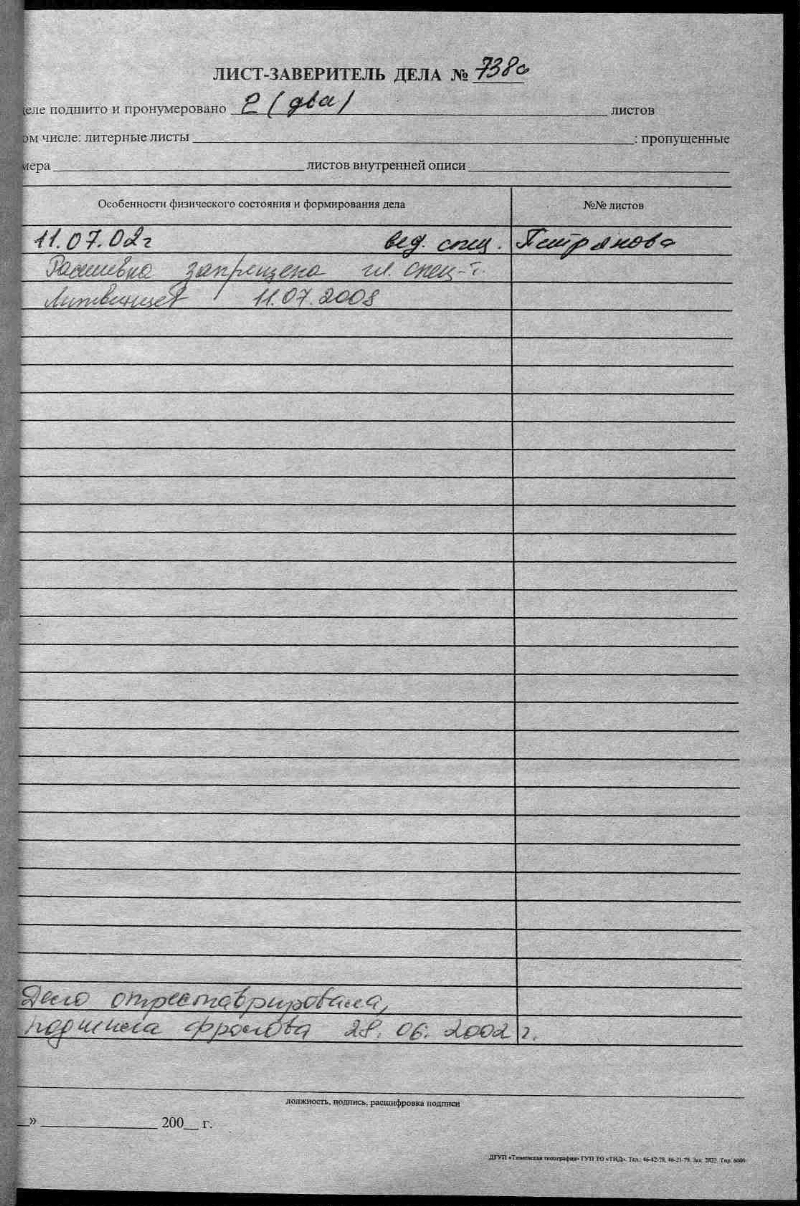 ЛИСТ-ЗАВЕРИТЕЛЬ ДЕЛА № 738а
деле подшито и пронумеровано 2 (два) листов
ом числе: литерные листы : пропущенные
мера листов внутренней описи
Особенности физического состояния и формирования дела №№ листов
11.07.02г вед. спец. Петрянова
Расшивка запрещена гл. спец-т.
11.07.2008
Дело отреставрировала,
подшила Фролова 28.06.2002 г.
должность, подпись, расшифровка подписи
» 200 г.
ДГУП «Тюменская типография» ГУП ТО «ТИД». Тел.: 46-42-78, 46-21-79. Зак. Тир.